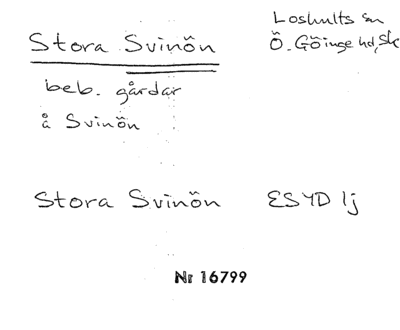 Loshults sn
Ö. Göinge hd, Sk
Stora Svinön
beb. gårdar
å Svinön
Stora Svinön ESYD lj
Nr 16799